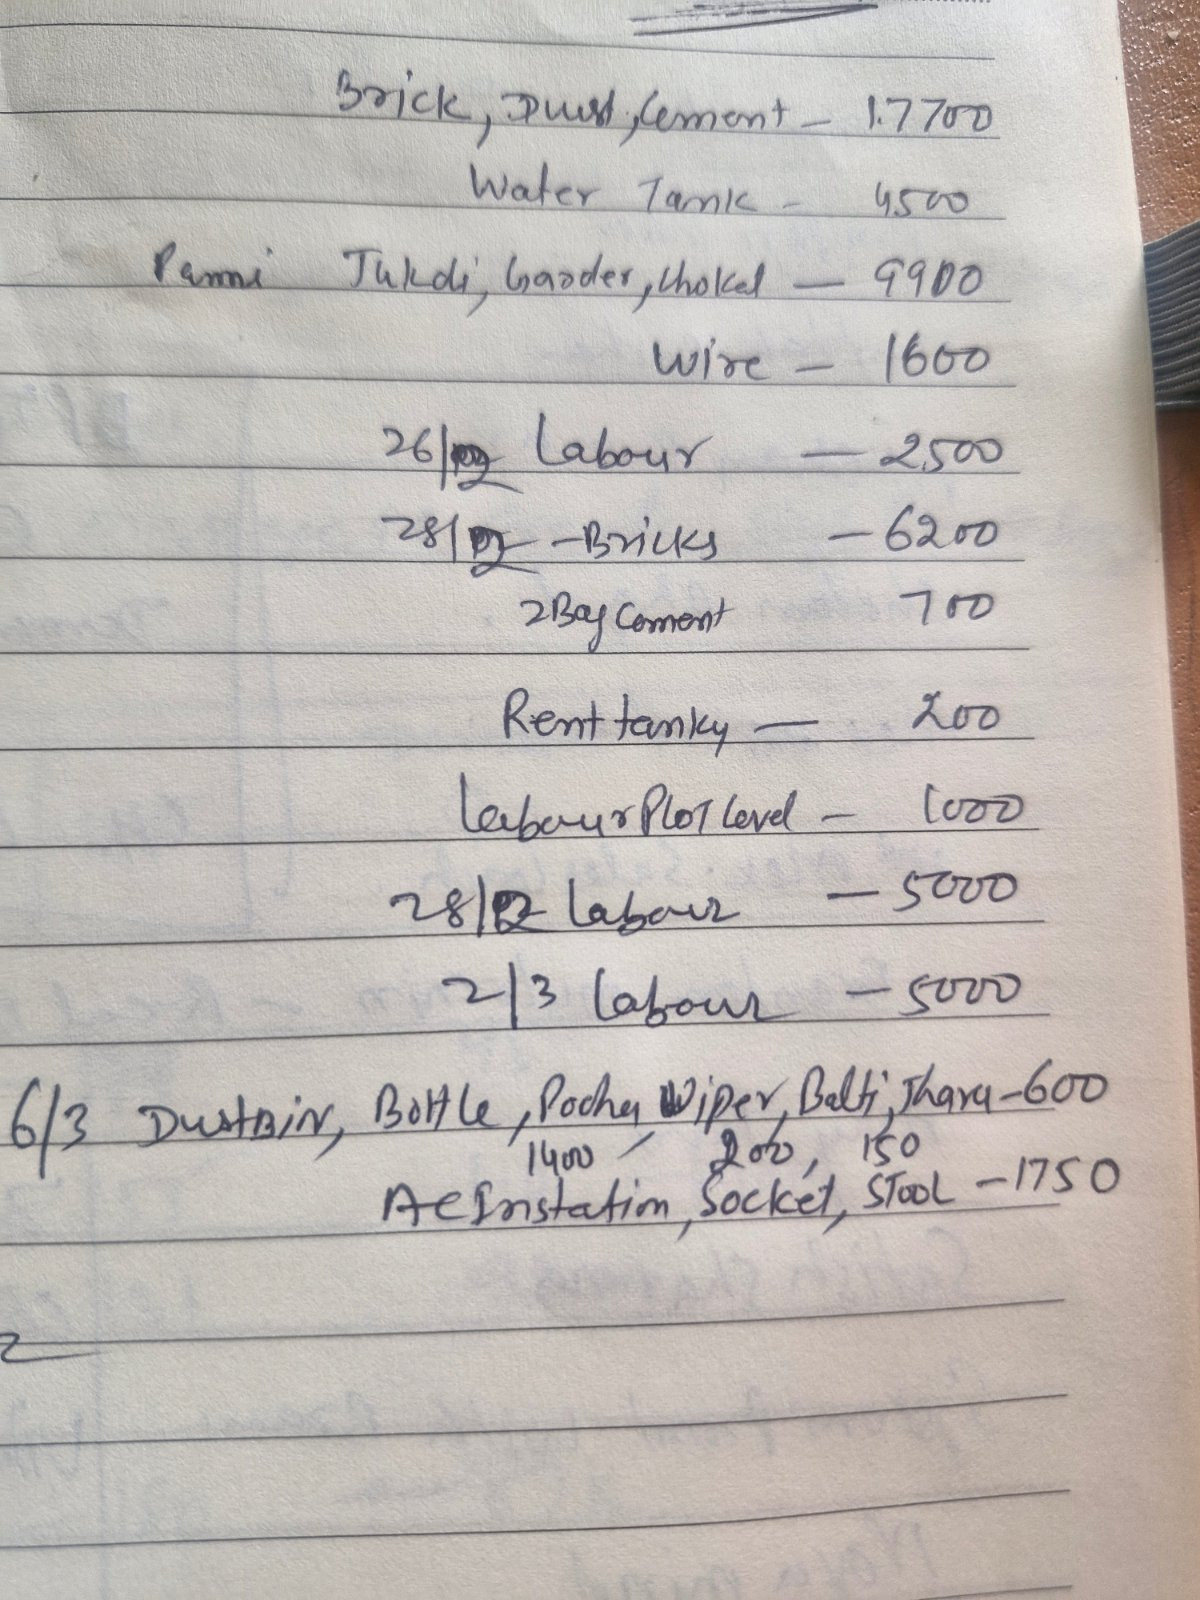 Brick, Dust, Cement - 17700
Water Tank - 4500
Panni Tukdi, Gaader, Chokal - 9900
Wire - 1600
26/02 Labour - 2500
28/02 - Bricks - 6200
2 Bag Cement 700
Rent tanky - 200
Labour PLOT Level - 1000
28/02 Labour - 5000
2/3 Labour - 5000
6/3 DustBin, Bottle, Pocha, Wiper, Balti, Jhara - 600
1400 200, 150
AC Instation, Socket, STOOL - 1750